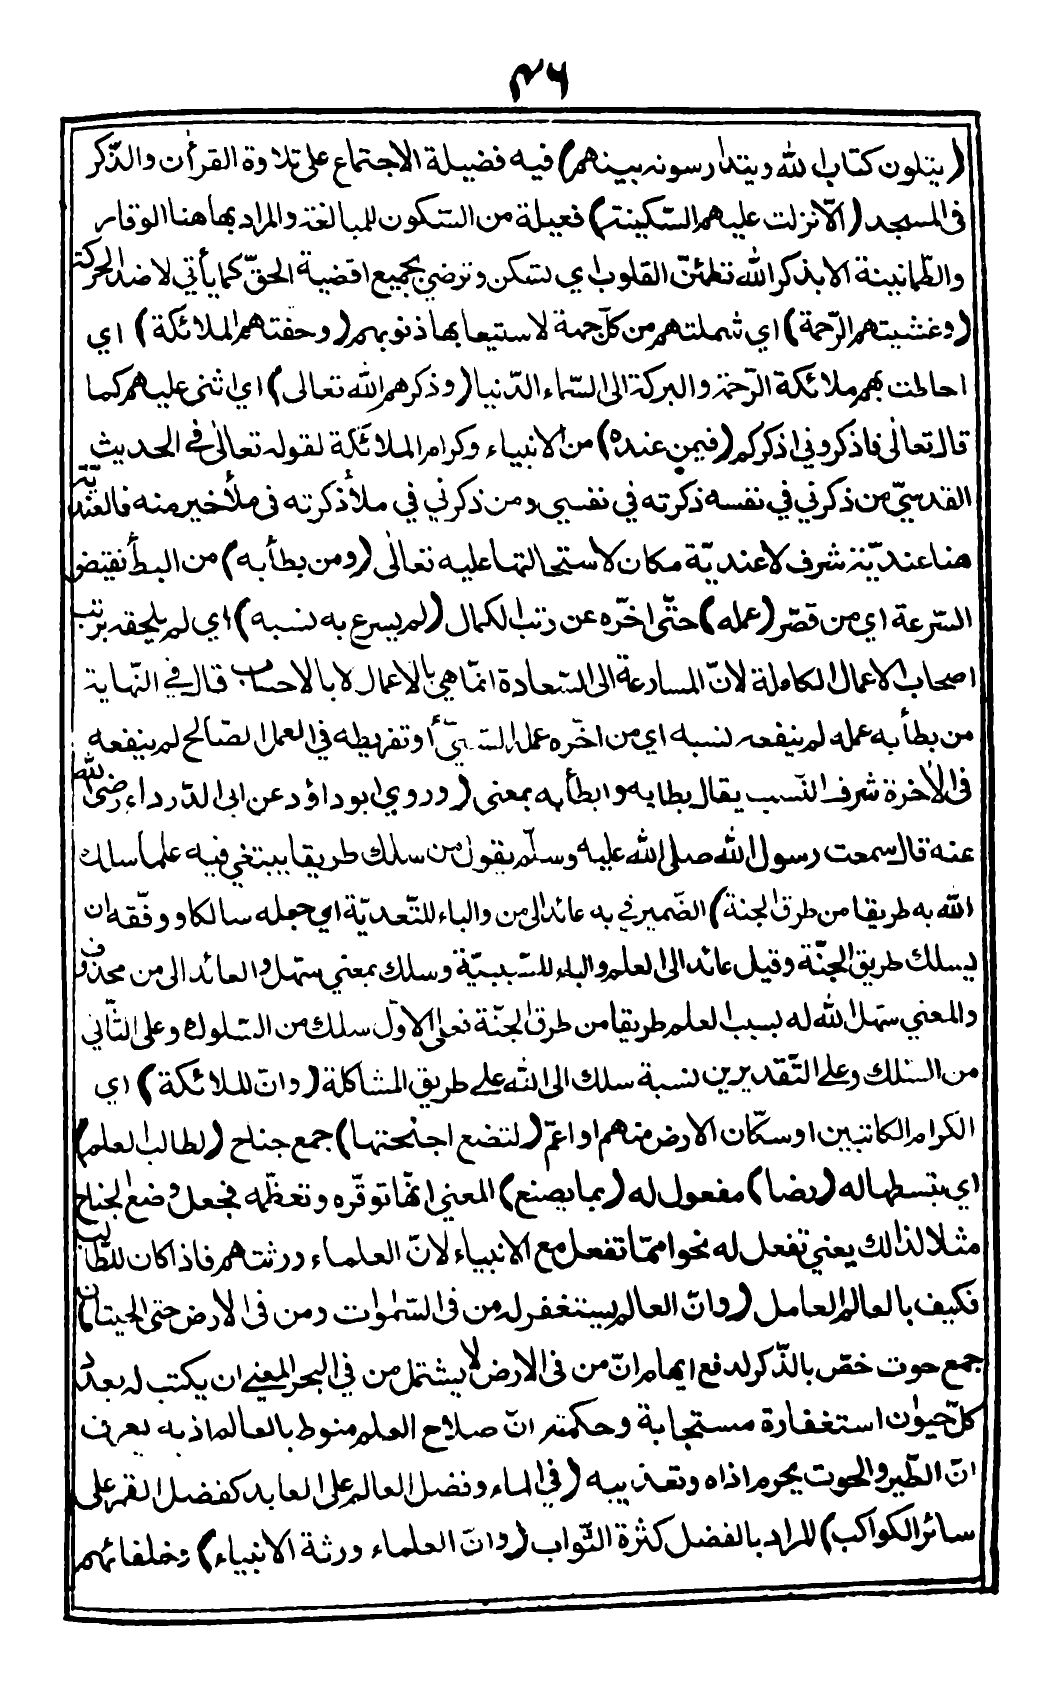 ٤٦
(يتلون كتاب الله ويتدارسونه بينهم) فيه فضيلة الاجتماع على تلاوة القرأن والذّكر
فى المسجد (الّا نزلت عليهم السّكينة) فعيلة من السّكون للمبالغة والمراد بها هنا الوقار
والطّمانينة الا بذكر الله تطمئنّ القلوب اي تسكن وترضى بجميع اقضية الحقّ كما يأتي لا ضد الحركة
(وغشيتهم الرّحمة) اي شملتهم من كلّ جهة لاستيعابها ذنوبهم (وحفتهم الملائكة) اي
احاطت بهم ملائكة الرّحمة والبركة الى السّماء الدّنيا (وذكرهم الله تعالى) اي اثنى عليهم كما
قال تعالى فاذكروني اذكركم (فيمن عنده) من الانبياء وكرام الملائكة لقوله تعالى في الحديث
القدسيّ من ذكرني في نفسه ذكرته في نفسي ومن ذكرني في ملأ ذكرته فى ملأ خير منه فالعنديّة
هنا عنديّة شرف لا عنديّة مكان لاستحالتها عليه تعالى (ومن بطأ به) من البطأ نقيض
السّرعة اي من قصّر (عمله) حتّى اخّره عن رتب الكمال (لم يسرع به نسبه) اي لم يلحقه برتب
اصحاب الاعمال الكاملة لانّ المسارعة الى السّعادة انّما هي بالاعمال لا بالاحساب قال في النّهاية
من بطأ به عمله لم ينفعه نسبه اي من اخّره عمله السّيّئ أو تفريطه في العمل الصّالح لم ينفعه
فى الأخرة شرف النّسب يقال بطا به وابطأ به بمعنى (وروي ابو داؤد عن ابى الدّرداء رضى الله
عنه قال سمعت رسول الله صلى الله عليه وسلّم يقول من سلك طريقا يبتغي فيه علما سلك
الله به طريقا من طرق الجنة) الضّمير في به عائد الى من والباء للتّعديّة اي جعله سالكا ووفّقه ان
يسلك طريق الجنّة وقيل عائد الى العلم والباء للسّببيّة وسلك بمعني سهل والعائد الى من محذوف
والمعني سهّل الله له بسبب العلم طريقا من طرق الجنّة فعلى الاوّل سلك من السّلوك وعلى الثّاني
من السّلك وعلى التّقديرين نسبة سلك الى الله على طريق المشاكلة (وانّ الملائكة) اي
الكرام الكاتبين او سكّان الارض منهم او اعمّ (لتضع اجنحتها) جمع جناح (لطالب العلم)
اي تبسطها له (رضا) مفعول له (بما يصنع) المعني انّها توقّره وتعظّمه فجعل وضع الجناح
مثلا لذالك يعني تفعل له نحوا ممّا تفعل مع الانبياء لانّ العلماء ورثتهم فاذا كان للطّالب
فكيف بالعالم العامل (وانّ العالم يستغفر له من فى السّمٰوات ومن فى الارض حتى الحيتان)
جمع حوت خصّ بالذّكر لدفع ايهام انّ من فى الارض لا يشتمل من في البحر المعني ان يكتب له بعدد
كلّ حيوٰن استغفارة مستجابة وحكمته انّ صلاح العلم منوط بالعالم اذ به يعرف
انّ الطّير والحوت يحرم اذاه وتعذيبه (في الماء وفضل العالم على العابد كفضل القمر على
سائر الكواكب) المراد بالفضل كثرة الثّواب (وانّ العلماء ورثة الانبياء) وخلفائهم